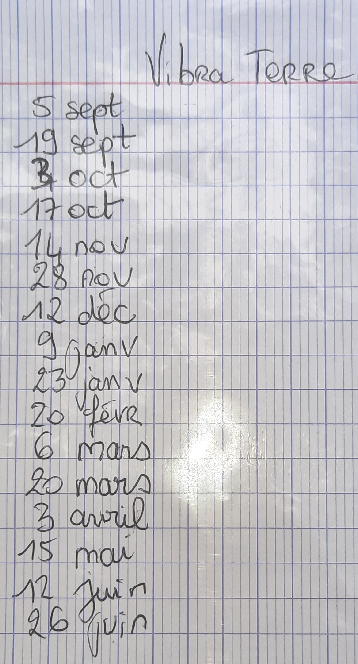 Vibra Terre
5 sept
19 sept
3 oct
17 oct
14 nov
28 nov
12 déc
9 janv
23 janv
20 févr
6 mars
20 mars
3 avril
15 mai
12 juin
26 juin